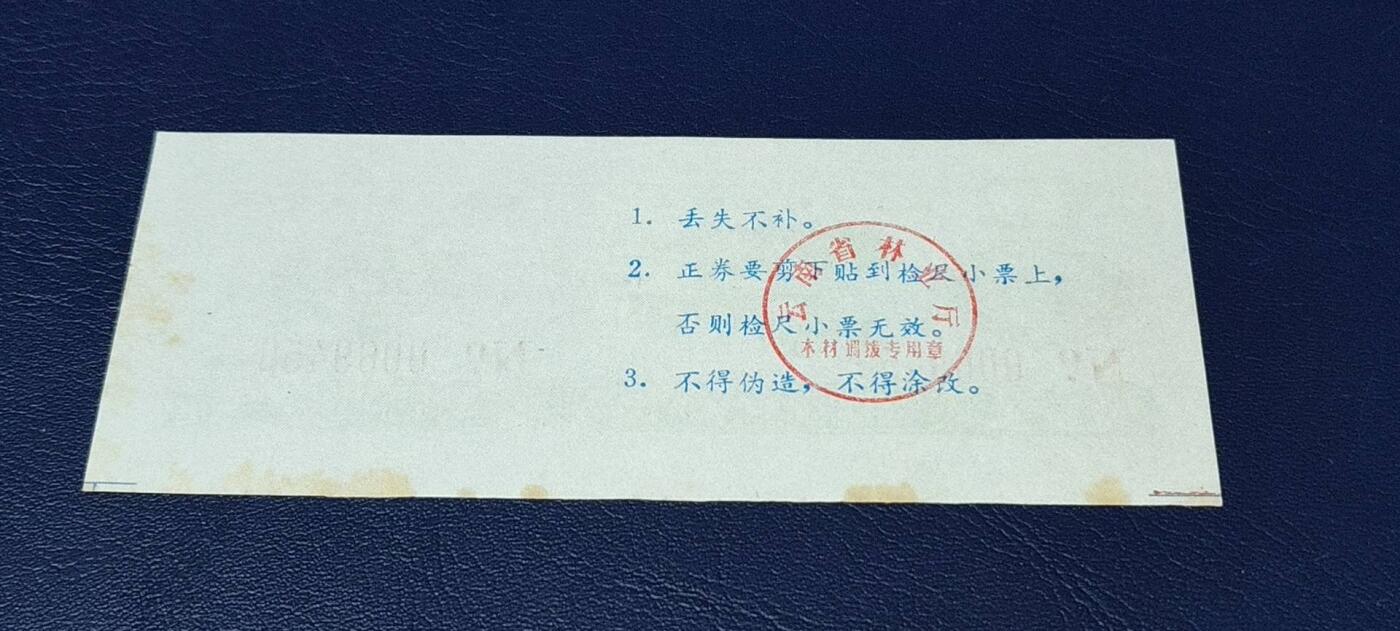 1. 丢失不补。
2. 正券要剪下贴到检尺小票上,
否则检尺小票无效。
3. 不得伪造,不得涂改。
云南省林业厅
木材调拨专用章